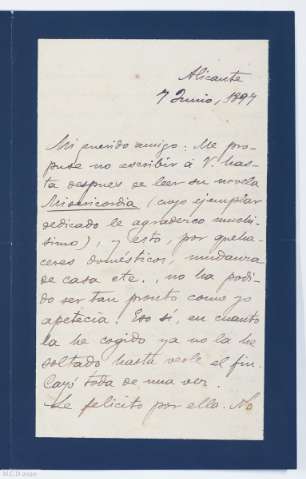 Alicante
7 Junio, 1897
Mi querido amigo: Me pro-
puse no escribir á V. has-
ta despues de leer su novela
Misericordia (cuyo ejemplar
dedicado le agradezco muchi-
simo), y esto, por queha-
ceres domésticos, mudanza
de casa etc., no ha podi-
do ser tan pronto como yo
apetecia. Eso sí, en cuanto
la he cogido ya no la he
soltado hasta verle el fin.
Cayó toda de una vez.
Le felicito por ella. No